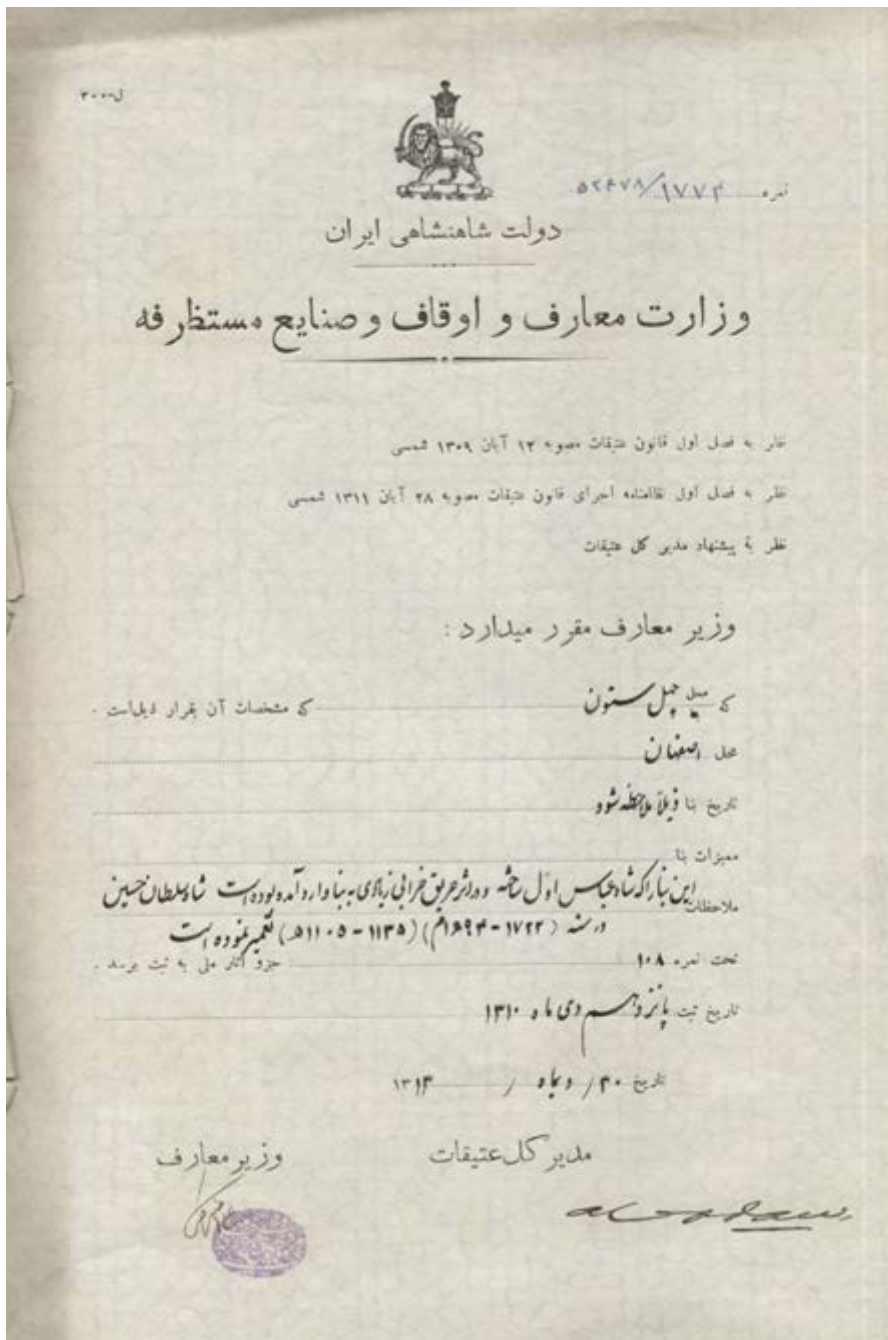 ل-۳۰۰۰
نمره ۵۲۴۷۸/۱۷۷۴
دولت شاهنشاهی ایران
وزارت معارف و اوقاف و صنایع مستظرفه
نظر به فصل اول قانون عتیقات مصوبه ۱۲ آبان ۱۳۰۹ شمسی
نظر به فصل اول نظامنامه اجرای قانون عتیقات مصوبه ۲۸ آبان ۱۳۱۱ شمسی
نظر به پیشنهاد مدیر کل عتیقات
وزیر معارف مقرر میدارد :
که چهل ستون که مشخصات آن بقرار ذیل‌است .
محل اصفهان
تاریخ بنا ذیلاً ملاحظه شود
ممیزات بنا
ملاحظات این بنا را که شاه عباس اول ساخته و در اثر حریق خرابی زیادی به بنا وارد آمده بوده است شاه سلطان حسین
در سنه (۱۷۲۲-۱۶۹۴م) (۱۱۳۵-۱۱۰۵ه) تعمیر نموده است
تحت نمره ۱۰۸ جزو آثار ملی به ثبت برسد .
تاریخ ثبت پانزدهم دی ماه ۱۳۱۰
تاریخ ۳۰/ دیماه / ۱۳۱۳
مدیر کل عتیقات
وزیر معارف